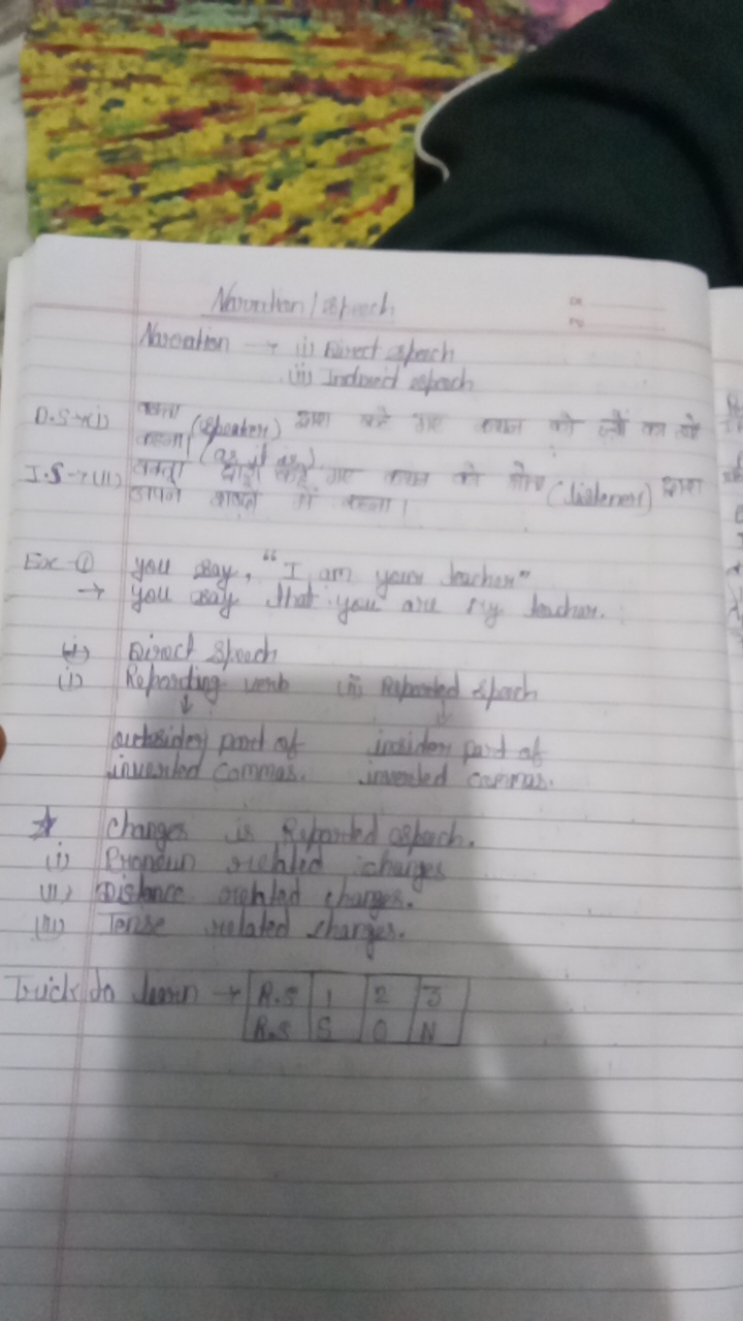 Narration / Speech
Narration → (i) Direct speech
(ii) Indirect speech
D.S → (i) वक्ता (Speaker) द्वारा कहे गए कथन को ज्यों का त्यों
कहना। (as it is).
I.S → (ii) वक्ता द्वारा कहे गए कथन को (Listener) द्वारा
अपने शब्दों में कहना।
Ex - ① you say, "I am your teacher"
→ you say that you are my teacher.
Direct Speech
(i) Reporting verb (ii) Reported speech
↓ ↓
outsider part of insider part of
inverted commas. inverted commas.
☆ Changes is Reported speech.
(i) Pronoun related changes
(ii) Distance related changes.
(iii) Tense related changes.
Trick to learn → R.S 1 2 3
R.S S O N